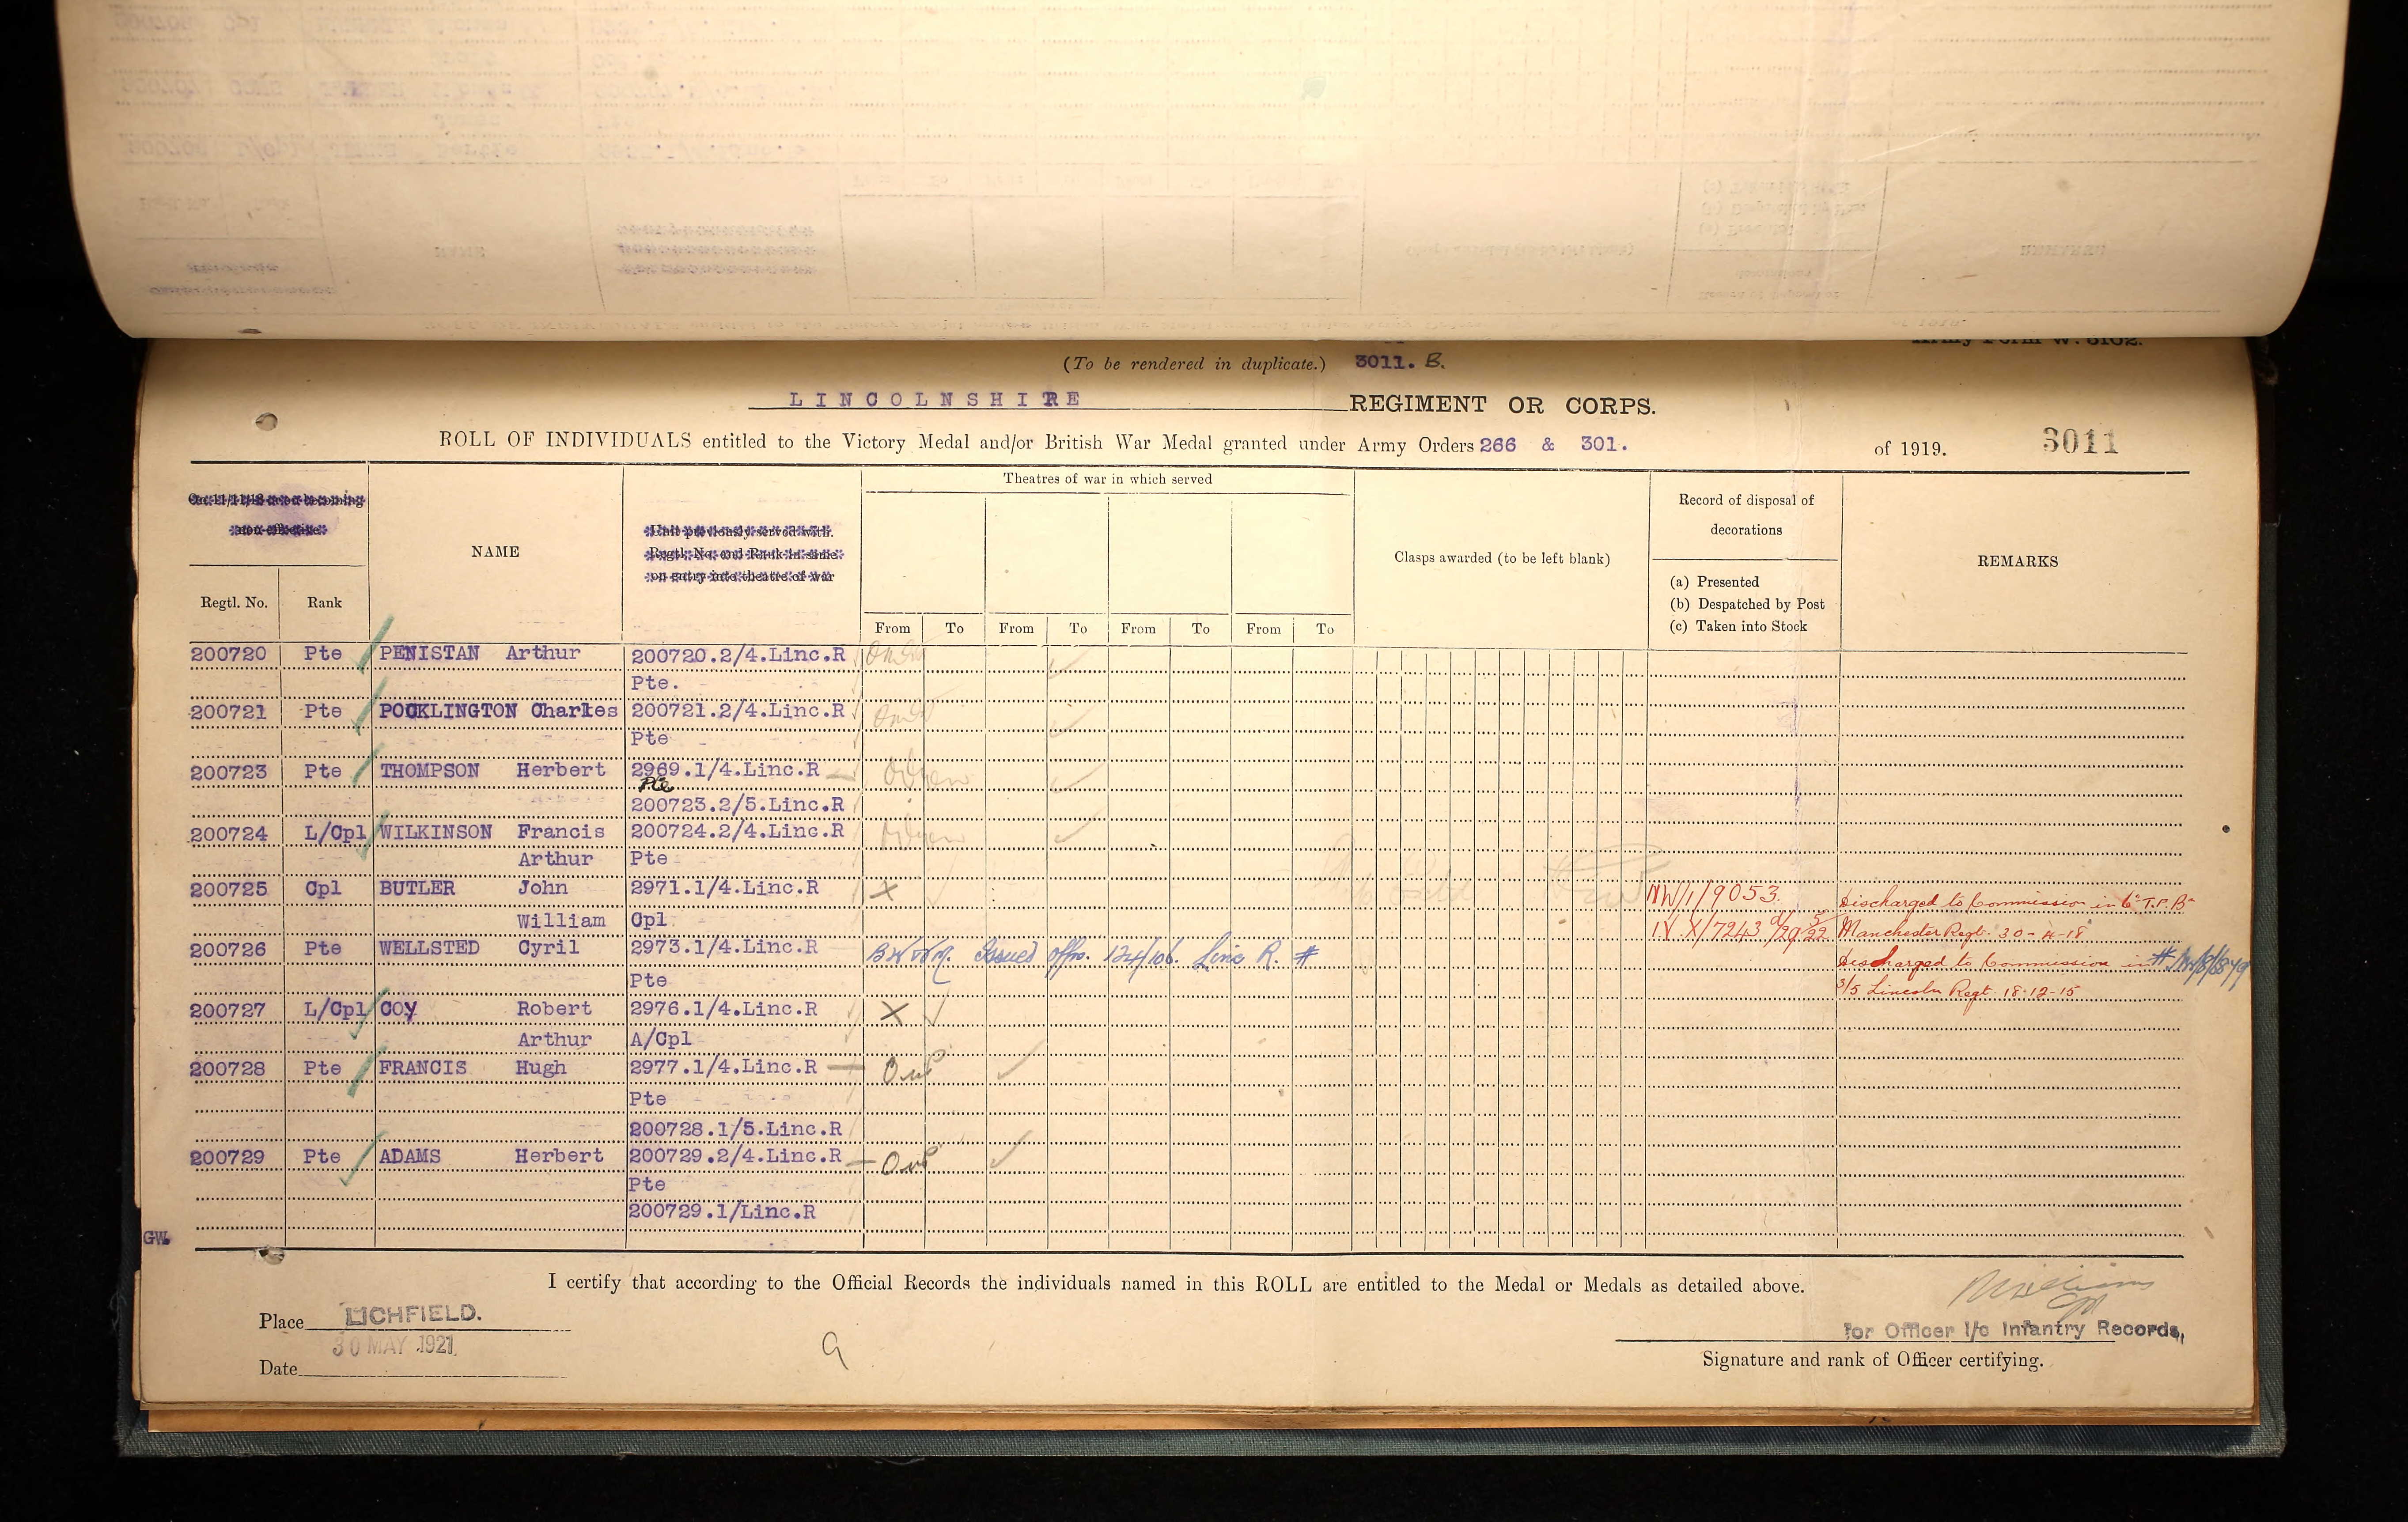 Army Form W. 5102.
(To be rendered in duplicate.) 3011. B.
LINCOLNSHIRE REGIMENT OR CORPS.
ROLL OF INDIVIDUALS entitled to the Victory Medal and/or British War Medal granted under Army Orders 266 & 301. of 1919. 3011
Theatres of war in which served
On 11/11/18 or on becoming
non-effective
Unit previously served with.
Regtl. No. and Rank in same
on entry into theatre of war
NAME
Clasps awarded (to be left blank)
Record of disposal of
decorations
(a) Presented
(b) Despatched by Post
(c) Taken into Stock
REMARKS
Regtl. No. Rank
From To From To From To From To
200720 Pte PENISTAN Arthur 200720.2/4.Linc.R
Pte.
200721 Pte POCKLINGTON Charles 200721.2/4.Linc.R
Pte
200723 Pte THOMPSON Herbert 2969.1/4.Linc.R
Pte
200723.2/5.Linc.R
200724 L/Cpl WILKINSON Francis 200724.2/4.Linc.R
Arthur Pte
200725 Cpl BUTLER John 2971.1/4.Linc.R X NW/1/9053. Discharged to Commission in
William Cpl IV.X/7243 Manchester Regt. 30-4-18
200726 Pte WELLSTED Cyril 2973.1/4.Linc.R Issued offrs. 124/106. Linc R. # Discharged to Commission in #
Pte 3/5 Lincoln Regt 18-12-15
200727 L/Cpl COY Robert 2976.1/4.Linc.R X
Arthur A/Cpl
200728 Pte FRANCIS Hugh 2977.1/4.Linc.R
Pte
200728.1/5.Linc.R
200729 Pte ADAMS Herbert 200729.2/4.Linc.R
Pte
200729.1/Linc.R
GW.
I certify that according to the Official Records the individuals named in this ROLL are entitled to the Medal or Medals as detailed above.
Place LICHFIELD.
30 MAY 1921
Date
for Officer I/c Infantry Records,
Signature and rank of Officer certifying.